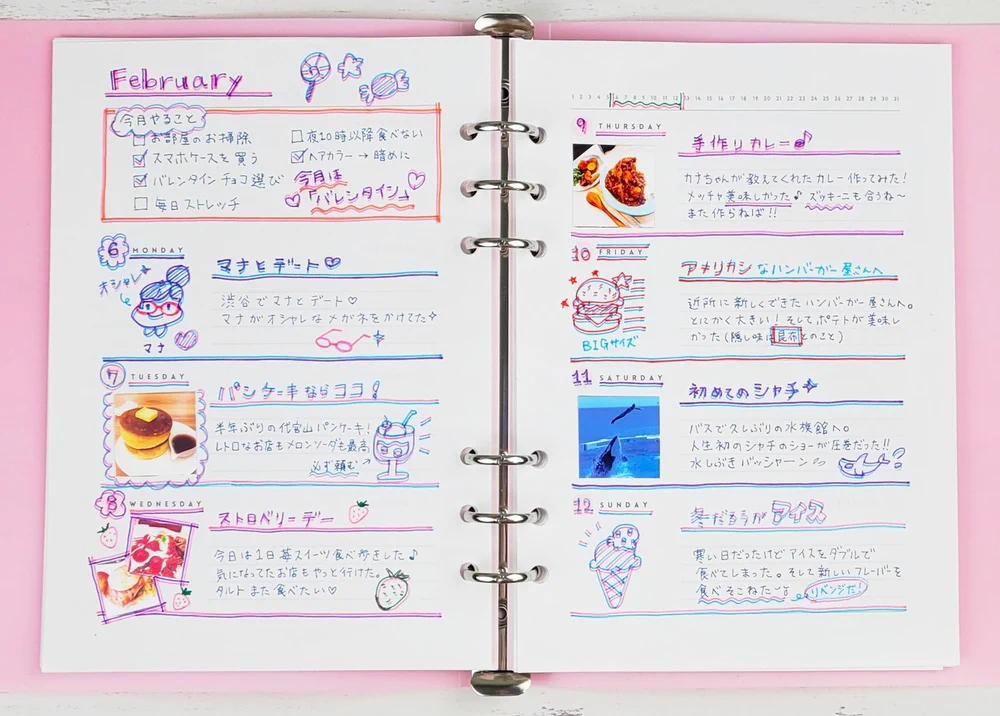 February
今月やること
お部屋のお掃除
スマホケースを買う
バレンタインチョコ選び
毎日ストレッチ
夜10時以降食べない
ヘアカラー→暗めに
今月は
「バレンタイン」
6 MONDAY
オシャレ
マナ
マナとデート♡
渋谷でマナとデート♡
マナがオシャレなメガネをかけてた
7 TUESDAY
パンケーキならココ!
半年ぶりの代官山パンケーキ!
レトロなお店もメロンソーダも最高
必ず頼む
8 WEDNESDAY
ストロベリーデー
今日は1日苺スイーツ食べ歩きした♪
気になってたお店もやっと行けた。
タルトまた食べたい♡
1 2 3 4 5 6 7 8 9 10 11 12 13 14 15 16 17 18 19 20 21 22 23 24 25 26 27 28 29 30 31
9 THURSDAY
手作りカレー♪
カナちゃんが教えてくれたカレー作ってみた!
メッチャ美味しかった♪ ズッキーニも合うね〜
また作らねば!!
10 FRIDAY
BIGサイズ
アメリカンなハンバーガー屋さんへ
近所に新しくできたハンバーガー屋さんへ。
とにかく大きい!そしてポテトが美味し
かった(隠し味は昆布とのこと)
11 SATURDAY
初めてのシャチ
バスで久しぶりの水族館へ。
人生初のシャチのショーが圧巻だった!!
水しぶきバッシャーン
12 SUNDAY
冬だろうがアイス
寒い日だったけどアイスをダブルで
食べてしまった。そして新しいフレーバーを
食べそこねた
リベンジだ!